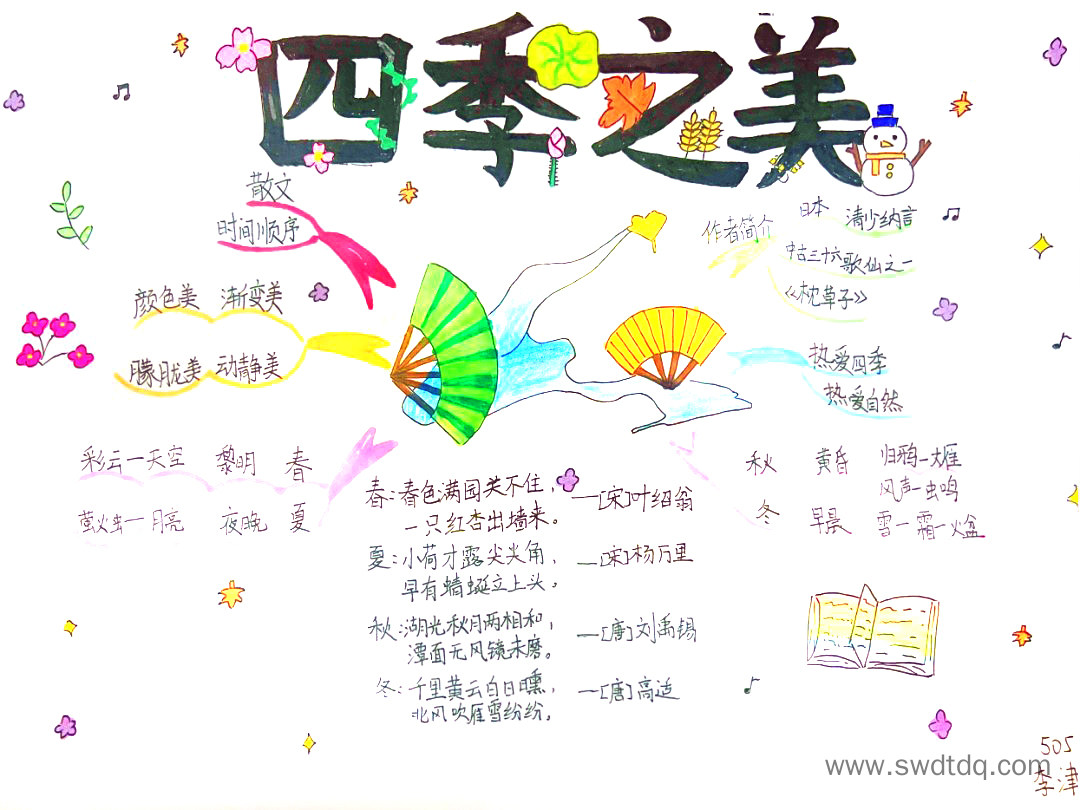 四季之美
散文
时间顺序
颜色美 渐变美
朦胧美 动静美
彩云一天空 黎明 春
萤火虫一月亮 夜晚 夏
作者简介
日本 清少纳言
中古三十六歌仙之一
《枕草子》
热爱四季
热爱自然
秋 黄昏 归鸦一大雁
风声一虫鸣
冬 早晨 雪一霜一火盆
春：春色满园关不住，
一只红杏出墙来。 —[宋]叶绍翁
夏：小荷才露尖尖角，
早有蜻蜓立上头。 —[宋]杨万里
秋：湖光秋月两相和，
潭面无风镜未磨。 —[唐]刘禹锡
冬：千里黄云白日曛，
北风吹雁雪纷纷。 —[唐]高适
505
李津
www.swdtdq.com